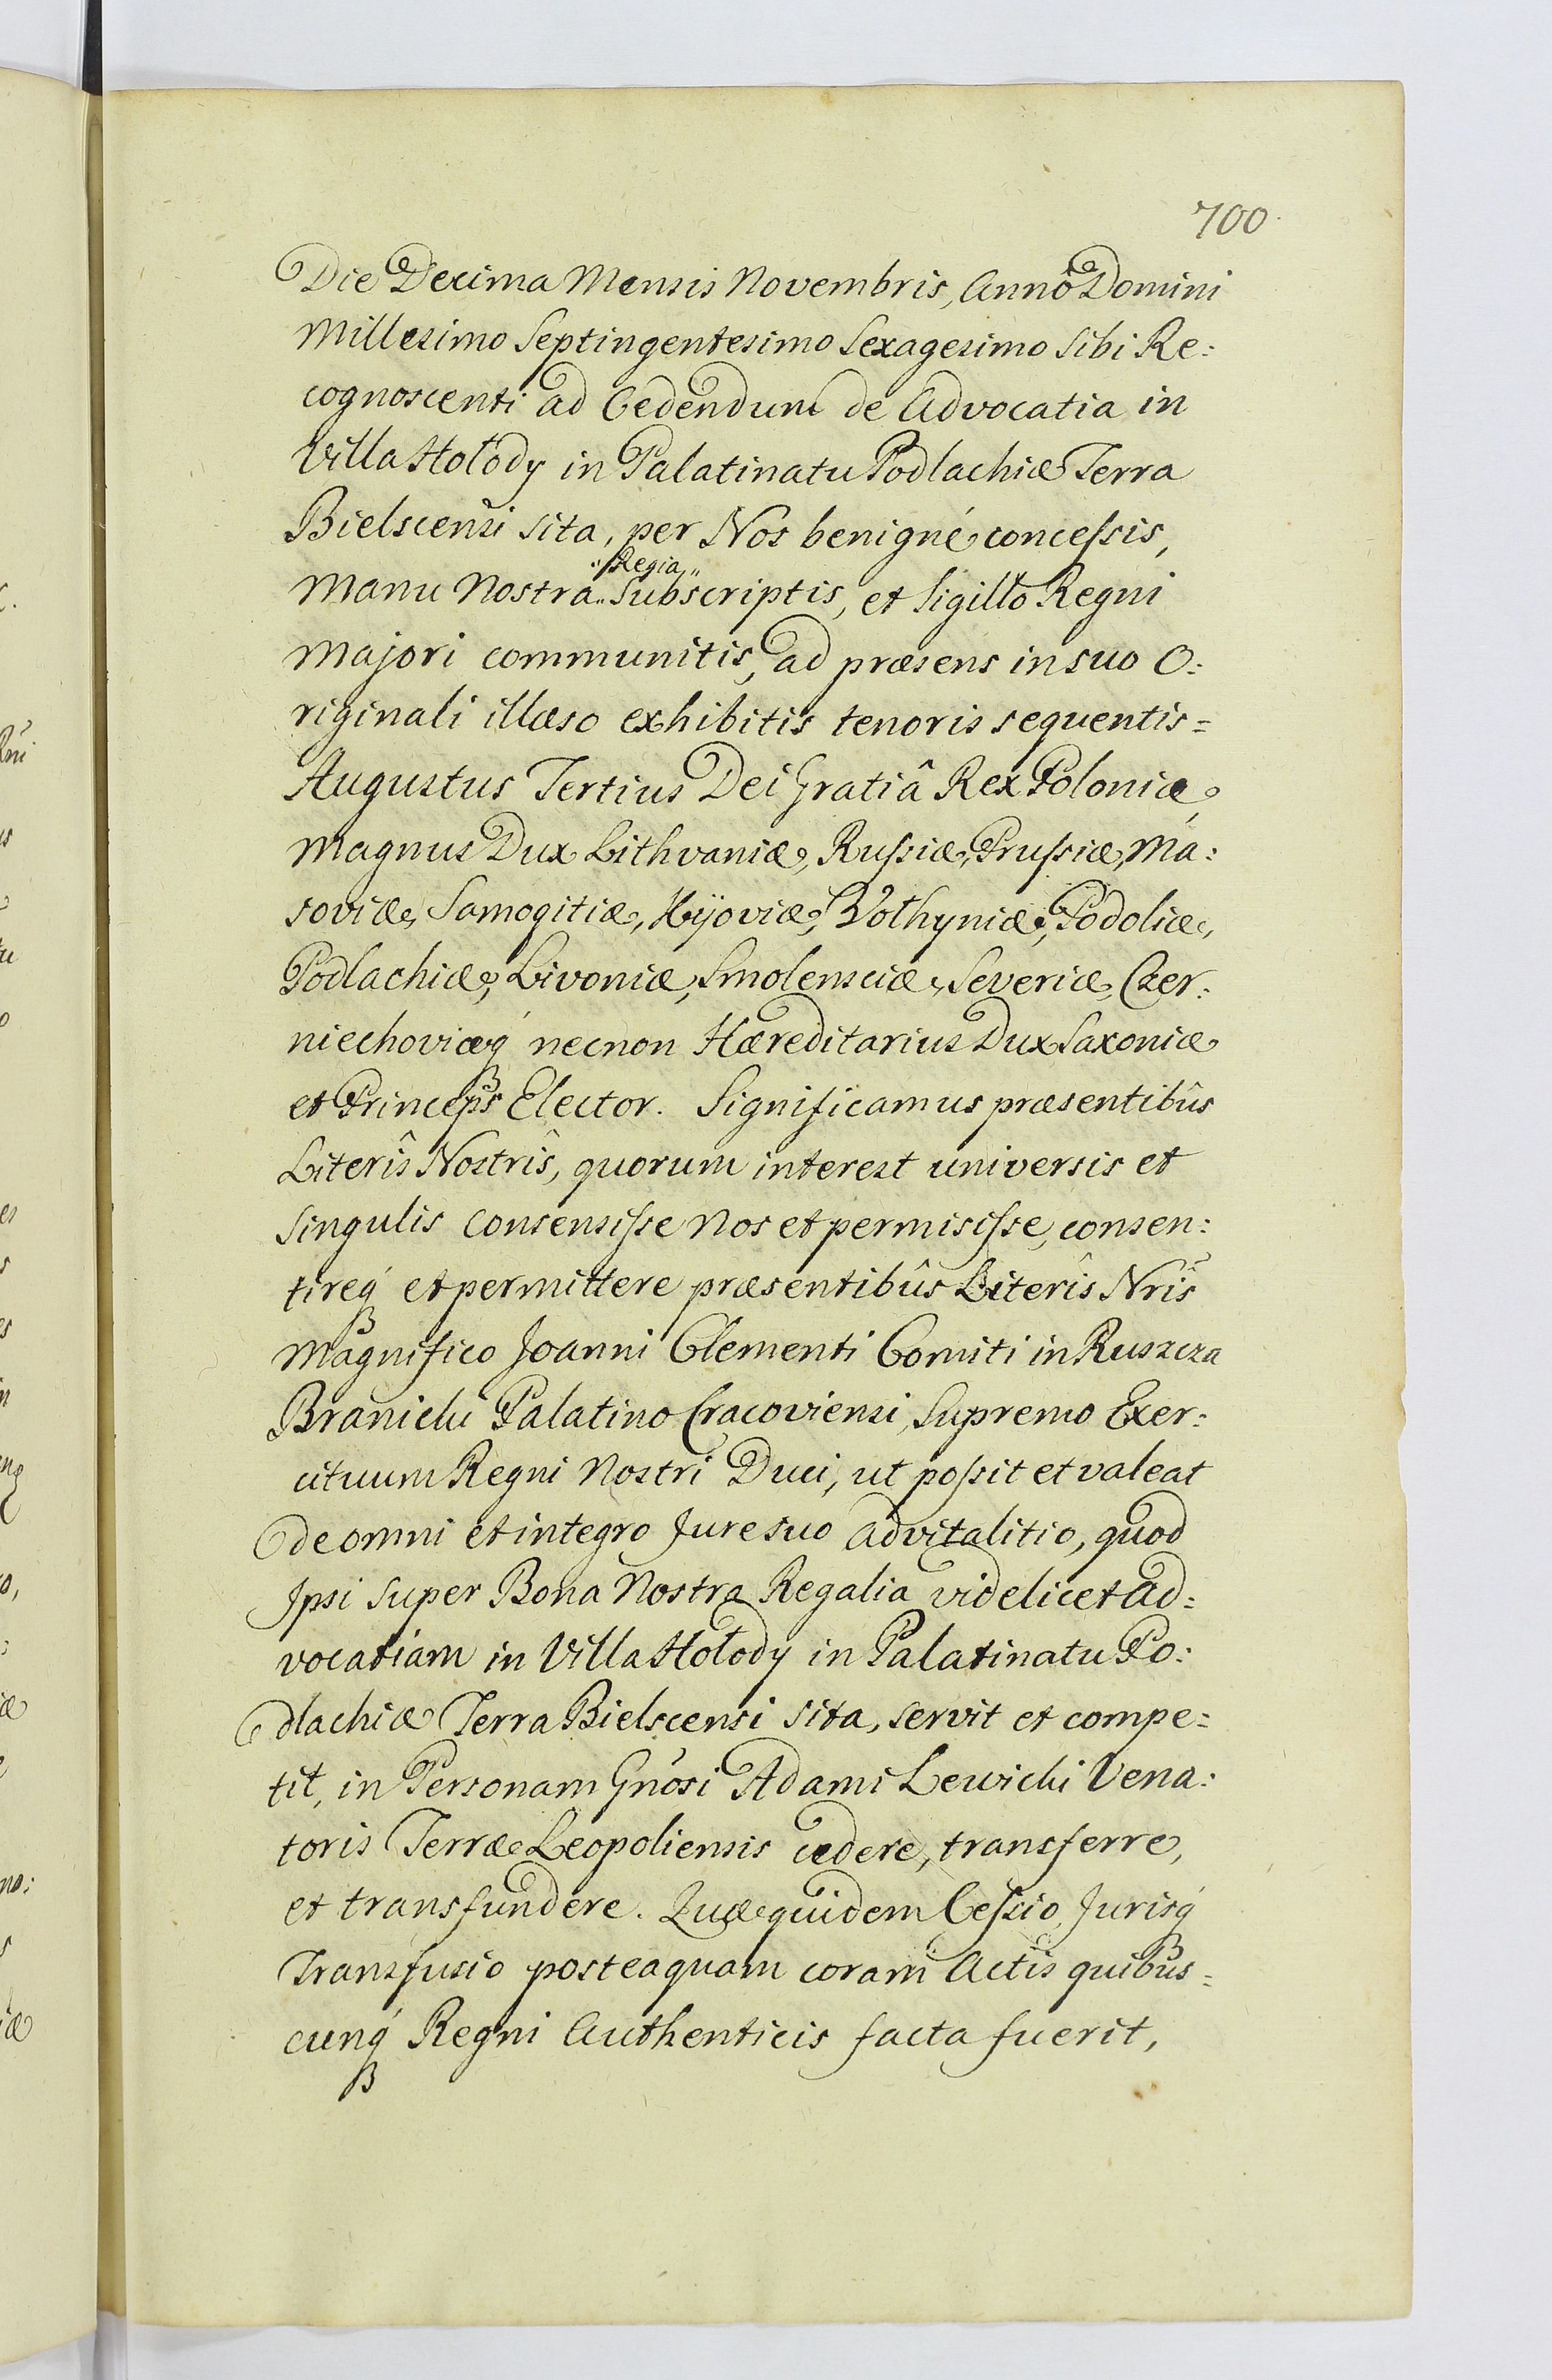 700
Die Decima Mensis Novembris, Anno Domini
Millesimo Septingentesimo Sexagesimo Sibi Re:
cognoscenti ad Cedendum de Advocatia in
Villa Hołody in Palatinatu Podlachiæ Terra
Bielscensi sita, per Nos benigné concessis,
Regia
Manu Nostra Subscriptis, et Sigillo Regni
Majori communitis, ad præsens in suo O:
riginali illæso exhibitis tenoris sequentis=
Augustus Tertius Dei Gratiâ Rex Poloniæ,
Magnus Dux Lithvaniæ, Russiæ, Prussiæ, Ma:
soviæ, Samogitiæ, Kijoviæ, Wołhyniæ, Podoliæ,
Podlachiæ, Livoniæ, Smolensciæ, Severiæ, Czer:
niechoviæq́ necnon Hæreditarius Dux Saxoniæ
et Princeps Elector. Significamus præsentibûs
Literîs Nostrîs, quorum interest universis et
singulis consensisse Nos et permisisse, consen:
tireq́ et permittere præsentibûs Literîs Nrîs
Magnifico Joanni Clementi Comiti in Ruszcza
Branicki Palatino Cracoviensi, Supremo Exer:
cituum Regni Nostri Duci, ut possit et valeat
de omni et integro Jure suo advitalitio, quod
Ipsi super Bona Nostra Regalia videlicet Ad:
vocatiam in Villa Hołody in Palatinatu Po:
dlachiæ Terra Bielscensi sita, servit et compe=
tit, in Personam Gnosi Adami Lewicki Vena:
toris Terræ Leopoliensis cedere, transferre,
et transfundere. Quæ quidem Cessio, Jurisq́
Transfusio posteaquam coram Actis quibus=
cunq́ Regni Authenticis facta fuerit,